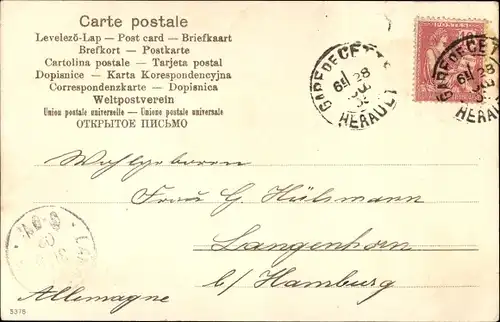 Carte postale
Levelező-Lap — Post card — Briefkaart
Brefkort — Postkarte
Cartolina postale — Tarjeta postal
Dopisnice — Karta Korespondencyjna
Correspondenzkarte — Dopisnica
Weltpostverein
Union postale universelle — Unione postale universale
ОТКРЫТОЕ ПИСЬМО
GARE DE CETTE
6E 28
HERAULT
GARE DE CETTE
6E 28
HERAULT
10
Wohlgeboren
Frau G. Hülsmann
Langenhorn
b/ Hamburg
Allemagne
5378